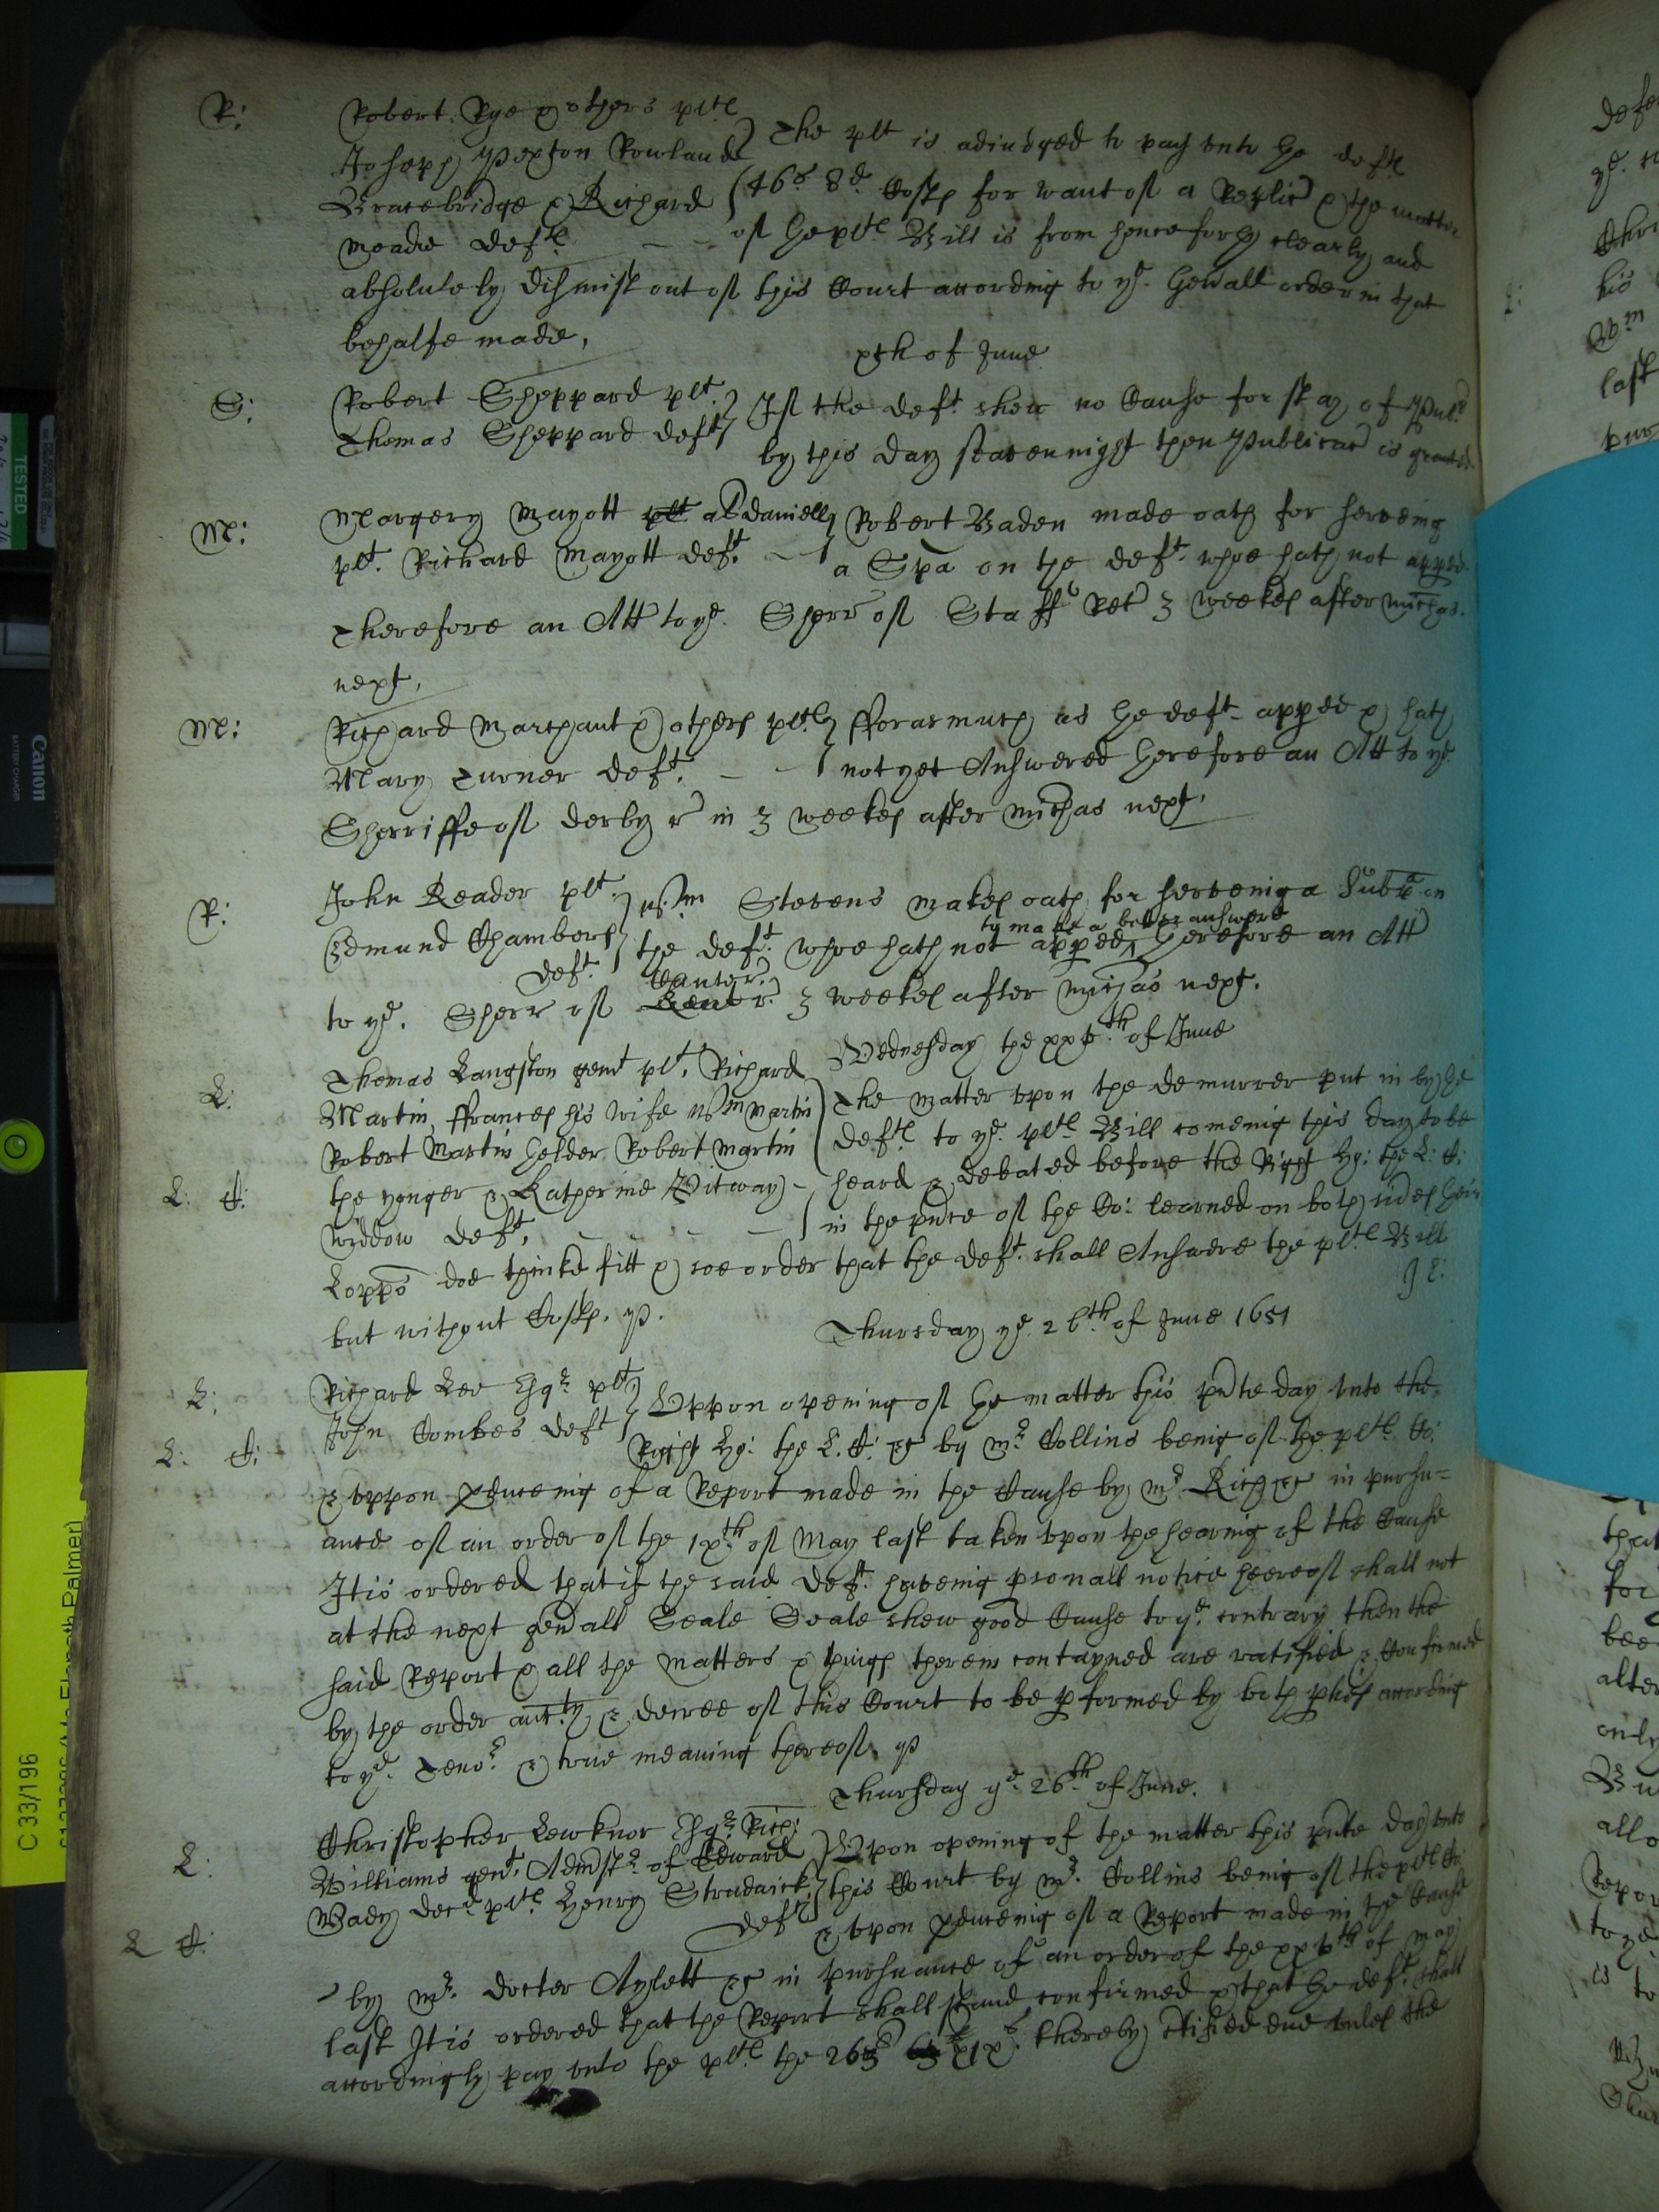 R:
Robert Rye & others pltes
Joseph Pexton Rowland
Bracebridge & Richard
Meade Deftes
The plt is adiudged to pay vnto the deftes
46s 8d Costs for want of a Replic & the matter
of the pltes Bill is from henceforth clearly and
absolutely dismist out of this Court according to ye. Genall order in that
behalfe made,
xth of June
S:
Robert Sheppard plt.
Thomas Sheppard deft
If the deft. shew no Cause for stay of Publ
by this day seavennight then Publicac is granted
M:
Margery Mayott als Daniell
plt. Richard Mayott deft.
Robert Baden made oath for serveing
a Spa on the deft. whoe hath not apped
Therefore an Att to ye. Sherr of Staff Ret 3 weekes after Michas.
next,
M:
Richard Marchant & others pltes
Mary Turner deft.
fforasmuch as the deft. apped & hath
not yet Answered therefore an Att to ye
Sherriffe of Derby r in 3 weekes after Michas next,
R:
John Reader plt.
Edmund Chambers
deft.
Wm Stevens makes oath for serveing a Subpa on
to make a better answere
the deft. whoe hath not apped, therefore an Att
Canter.
to ye. Sherr of 3 weekes after Michas next.
Wednesday the xxvth of June
L:
Thomas Langston gent plt. Richard
Martin ffrances his wife Wm Martin
Robert Martin thelder Robert Martin
the yonger & Katherine Witway
widdow deft.
The matter vpon the demurrer put in by the
deftes to ye. pltes Bill comeing this day to be
heard & debated before the Right Ho: the L: C:
in the pnce of the Co: learned on both sides their
L: C:
Lopps doe thinke fitt & soe order that the deft. shall Answere the pltes Bill
but without Costs. p.
Thursday ye. 26th of June 1651
L:
Richard Lee Esqr plt
John Combes deft
L: C:
Vppon opening of the matter this pnte day vnto the
Right Ho: the L. C: &c by Mr Collins being of the pltes Co:
& vppon pduceing of a Report made in the Cause by Mr Rich &c in pursu=
ance of an order of the ixth of May last taken vpon the hearing of the Cause
It is ordered that if the said deft. haveing psonall notice heereof shall not
at the next genall Seale Seale shew good Cause to ye. contrary then the
said Report & all the matters & things therein contayned are ratified & confirmed
by the order autty & decree of this Court to be pformed by both pties according
to ye. Tenor & true meaning thereof. p
Thursday ye. 26th of June.
L:
Christopher Lewknor Esqr Rich:
Williams gent. Admstr of Edward
Bady decd pltes Henry Stradwick
deft
L C:
Vpon opening of the matter this pnte day vnto
this Court by Mr. Collins being of the pltes Co:
& vpon pduceing of a Report made in the Cause
by Mr. Docter Aylett &c in pursuance of an order of the xxvth of May
last It is ordered that the Report shall stand confirmed & that the deft. shall
accordingly pay vnto the pltes the thereby ctified due vnles the
TESTED
Canon
BATTERY CHARGER
C 33/196
(Ms Elspeth Palmer)